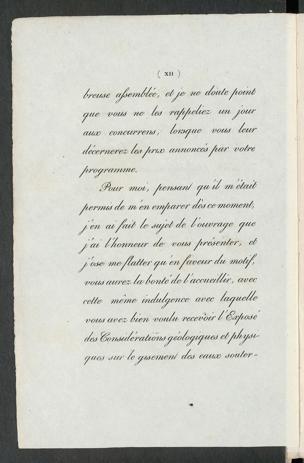 ( XII )
breuse assemblée, et je ne doute point
que vous ne les rappeliez un jour
aux concurrens, lorsque vous leur
décernerez les prix annoncés par votre
programme.
Pour moi, pensant qu'il m'était
permis de m'en emparer dès ce moment,
j'en ai fait le sujet de l'ouvrage que
j'ai l'honneur de vous présenter, et
j'ose me flatter qu'en faveur du motif,
vous aurez la bonté de l'accueillir, avec
cette même indulgence avec laquelle
vous avez bien voulu recevoir l'Exposé
des Considérations géologiques et physi-
ques sur le gisement des eaux souter-